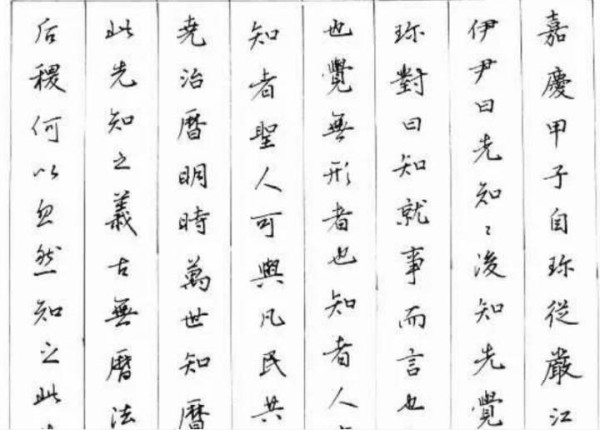 嘉慶甲子自珍從嚴江
伊尹曰先知〻後知先覺
珍對曰知就事而言也
也覺無形者也知者人
知者聖人可與凡民共
堯治曆明時萬世知曆
此先知之義古無曆法
后稷何以忽然知之此